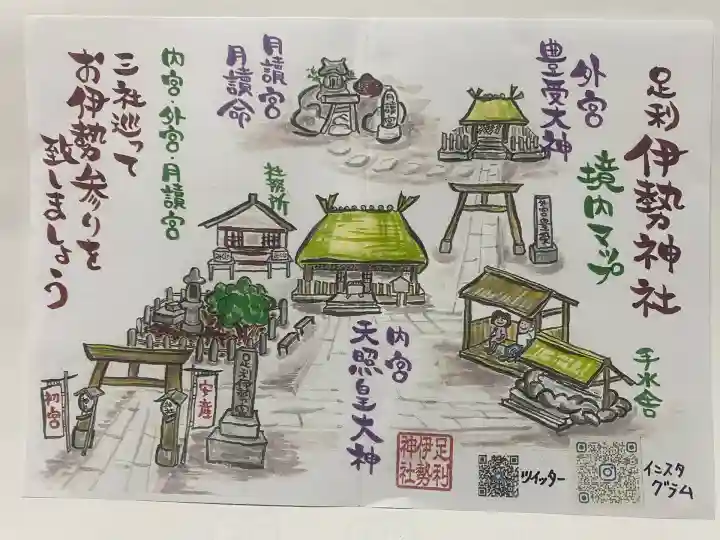 足利伊勢神社
境内マップ
外宮
豊受大神
月讀宮
月讀命
内宮・外宮・月讀宮
三社巡って
お伊勢参りを
致しましょう
月讀宮
社務所
内宮
天照皇大神
手水舎
初宮
安産
足利伊勢宮
足利
伊勢
神社
ツイッター
インスタ
グラム